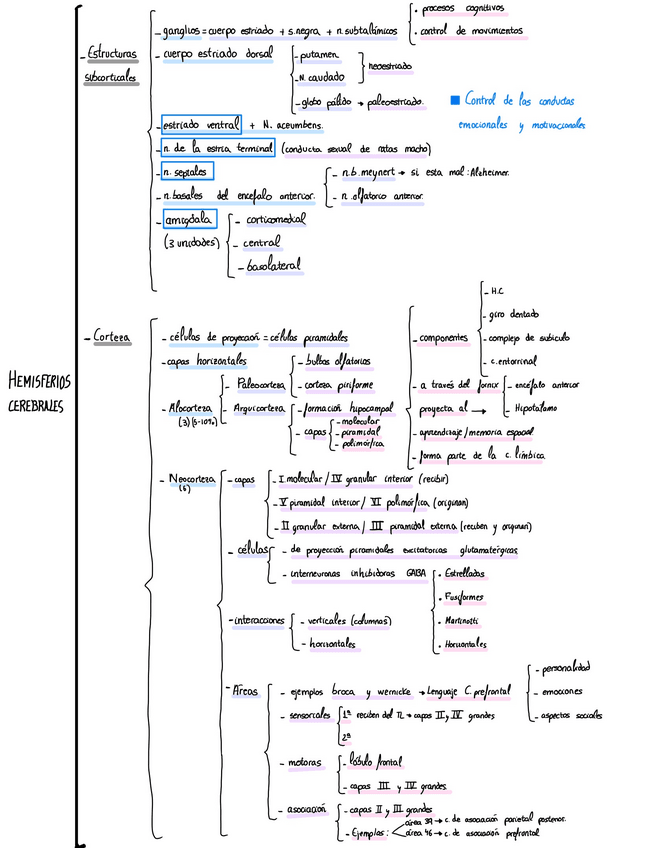 HEMISFERIOS
CEREBRALES
- Estructuras
subcorticales
- ganglios = cuerpo estriado + s.negra + n.subtalámicos
• procesos cognitivos
• control de movimientos
- cuerpo estriado dorsal
- putamen
- N. caudado
neoestriado
- globo pálido → paleoestriado.
■ Control de las conductas
emocionales y motivacionales
- estriado ventral + N. accumbens.
- n. de la estria terminal (conducta sexual de ratas macho)
- n. septales
- n. basales del encéfalo anterior.
- n.b. meynert → si esta mal: Alzheimer.
- n. olfatorio anterior.
- amígdala
(3 unidades)
- corticomedial
- central
- basolateral
- Corteza
- células de proyección = células piramidales
- capas horizontales
- Alocorteza
(3)
- Paleocorteza
- bulbos olfatorios
- corteza piriforme
- Arquicorteza
- formación hipocampal
- capas
- molecular
- piramidal
- polimórfica
- componentes
- H.C
- giro dentado
- complejo de subiculo
- c. entorrinal
- a través del fornix
proyecta al →
- encéfalo anterior
- Hipotálamo
- aprendizaje/memoria espacial
- forma parte de la c. límbica
- Neocorteza
(6)
- capas
- I molecular / IV granular interior (recibir)
- V piramidal interior / VI polimórfica (originan)
- II granular externa / III piramidal externa (reciben y originan)
- células
- de proyección piramidales excitatorias glutamatérgicas
- interneuronas inhibidoras GABA
• Estrelladas
• Fusiformes
• Martinotti
• Horizontales
- interacciones
- verticales (columnas)
- horizontales
- Áreas
- ejemplos broca y wernicke → Lenguaje C. prefrontal
- personalidad
- emociones
- aspectos sociales
- sensoriales
1ª reciben del TL → capas II y IV grandes
2ª
- motoras
- lóbulo frontal
- capas III y IV grandes
- asociación
- capas II y III grandes
- Ejemplos:
área 39 → c. de asociación parietal posterior.
área 46 → c. de asociación prefrontal